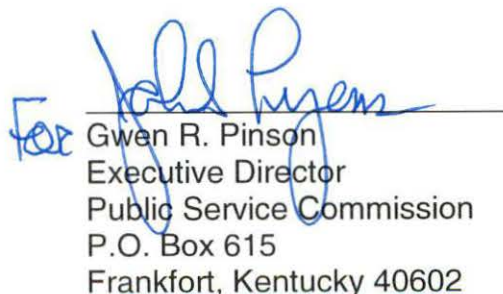 For
Gwen R. Pinson
Executive Director
Public Service Commission
P.O. Box 615
Frankfort, Kentucky 40602